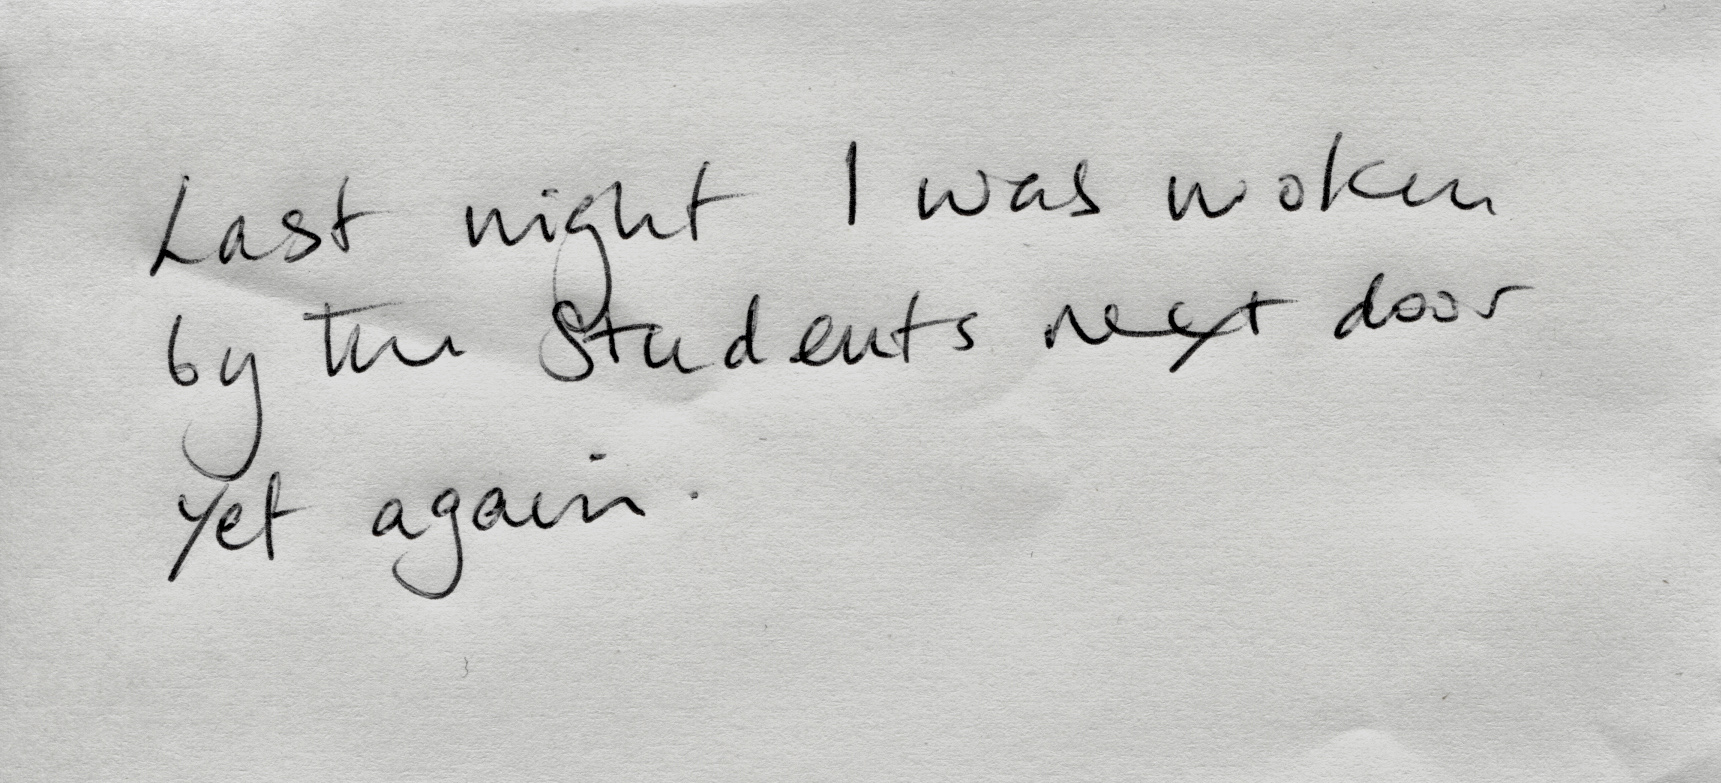 Last night I was woken
by the students next door
yet again.